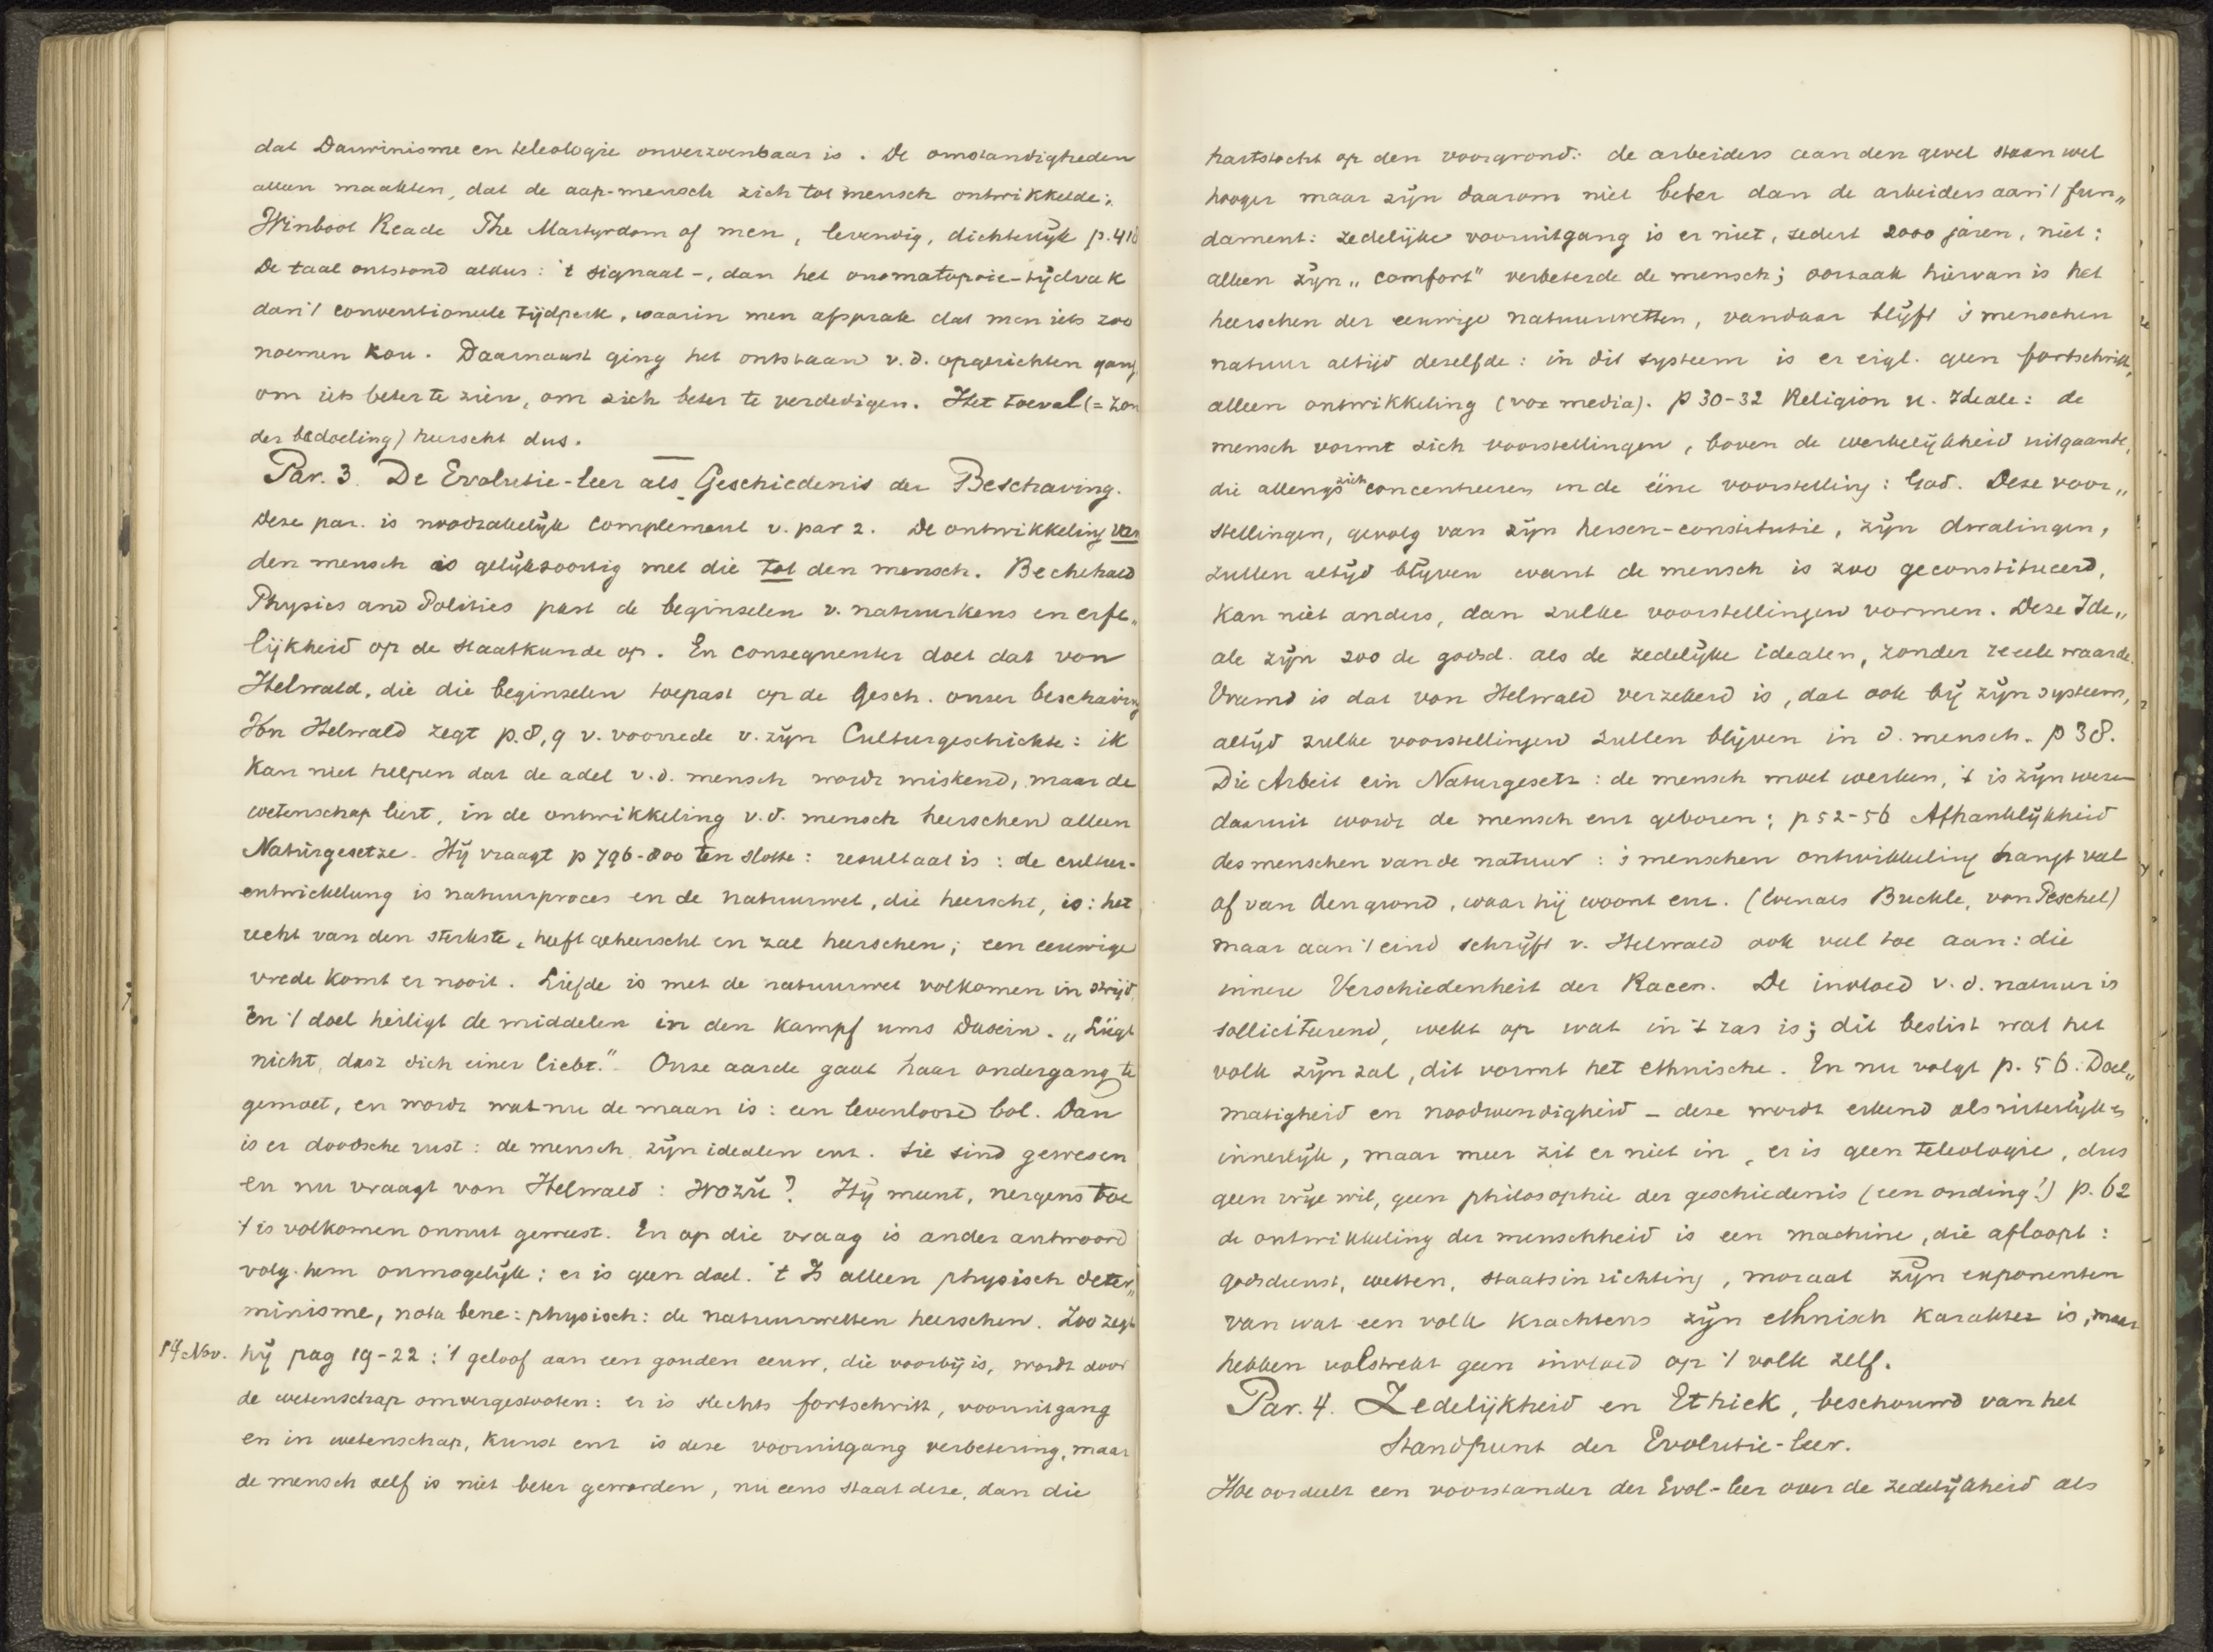 dat Darwinisme en teleologie onverzoenbaar is. De omstandigheden
alleen maakten, dat de aap-mensch zich tot mensch ontwikkelde:
Winbool Reade The Martyrdom of men, levendig, dichterlijk p. 410
De taal ontstond aldus: 't signaal-, dan het onomatopoie-tijdvak
dan 't conventioneele tijdperk, waarin men afsprak dat men iets zoo
noemen kou. Daarnaast ging het ontstaan v.d. opgerichten gang,
om iets beter te zien, om zich beter te verdedigen. Het toeval (= zon
der bedoeling) heerscht dus.
Par. 3. De Evolutie-leer als Geschiedenis der Beschaving.
Deze par. is noodzakelijk complement v. par 2. De ontwikkeling van
den mensch is gelijksoortig met die tot den mensch. Bechehald
Physics and Politics past de beginselen v. natuurkeus en erfe„
lijkheid op de staatkunde op. En consequenter doet dat von
Helwald, die die beginselen toepast op de Gesch. onzer beschaving
Von Helwald zegt p. 8, 9 v. voorrede v. zijn Culturgeschichte: ik
kan niet helpen dat de adel v.d. mensch wordt miskend, maar de
wetenschap leert, in de ontwikkeling v.d. mensch heerschen alleen
Natürgesetze. Hij vraagt p 796-800 ten slotte: resultaat is: de cultur-
entwickelung is natuurproces en de natuurwet, die heerscht, is: het
recht van den sterkste, heeft geheerscht en zal heerschen; een eeuwige
vrede komt er nooit. Liefde is met de natuurwet volkomen in strijd,
En 't doel heiligt de middelen in den Kampf ums Dasein. „Lügt
nicht, dasz dich einer liebt." Onze aarde gaat haar ondergang te
gemoet, en wordt wat nu de maan is: een levenloose bol. Dan
is er doodsche rust: de mensch, zijn idealen enz. Sie sind gewesen
En nu vraagt von Helwald: Wozü? Hij meent, nergens toe
't is volkomen onnut geweest. En op die vraag is ander antwoord
volg. hem onmogelijk: er is geen doel. 't Is alleen physisch deter„
minisme, nota bene: physisch: de natuurwetten heerschen. Zoo zegt
14 Nov. hij pag 19-22: 't geloof aan een gouden eeuw, die voorbij is, wordt door
de wetenschap omvergestooten: er is slechts fortschritt, vooruitgang
en in wetenschap, kunst enz is deze vooruitgang verbetering, maar
de mensch zelf is niet beter geworden, nu eens staat deze, dan die
hartstocht op den voorgrond: de arbeiders aan den gevel staan wel
hooger maar zijn daarom niet beter dan de arbeiders aan 't fun„
dament: zedelijke vooruitgang is er niet, sedert 2000 jaren, niet:
alleen zijn „comfort" verbeterde de mensch; oorzaak hiervan is het
heerschen der eeuwige natuurwetten, vandaar blijft 's menschen
natuur altijd dezelfde: in dit systeem is er eigl. geen fortschritt,
alleen ontwikkeling (vox media). p 30-32 Religion u. Ideale: de
mensch vormt zich voorstellingen, boven de werkelijkheid uitgaande,
die allengs zich concentreeren in de ééne voorstelling: God. Deze voor„
stellingen, gevolg van zijn hersen-constitutie, zijn dwalingen,
zullen altijd blijven want de mensch is zoo geconstitueerd,
kan niet anders, dan zulke voorstellingen vormen. Deze Ide„
ale zijn zoo de godsd. als de zedelijke idealen, zonder reeele waarde.
Vreemd is dat von Helwald verzekerd is, dat ook bij zijn systeem,
altijd zulke voorstellingen zullen blijven in d. mensch. p 38.
Die Arbeit ein Naturgesetz: de mensch moet werken, 't is zijn wezen
daaruit wordt de mensch eerst geboren; p 52-56 Afhankelijkheid
des menschen van de natuur: 's menschen ontwikkeling hangt veel
af van den grond, waar hij woont enz. (Evenals Buckle, von Peschel)
maar aan 't eind schrijft v. Helwald ook veel toe aan: die
innere Verschiedenheit der Racen. De invloed v.d. natuur is
solliciteerend, wekt op wat in 't ras is; dit beslist wat het
volk zijn zal, dit vormt het ethnische. En nu volgt p. 56: Doel„
matigheid en noodwendigheid - deze wordt erkend als uiterlijk en
innerlijk, maar meer zit er niet in, er is geen teleologie, dus
geen vrije wil, geen philosophie der geschiedenis (een onding!) p. 62
de ontwikkeling der menschheid is een machine, die afloopt:
godsdienst, wetten, staatsinrichting, moraal zijn exponenten
van wat een volk krachtens zijn ethnisch karakter is, maar
hebben volstrekt geen invloed op 't volk zelf.
Par. 4. Zedelijkheid en Ethiek, beschouwd van het
Standpunt der Evolutie-leer.
Hoe oordeelt een voorstander der Evol-leer over de zedelijkheid als